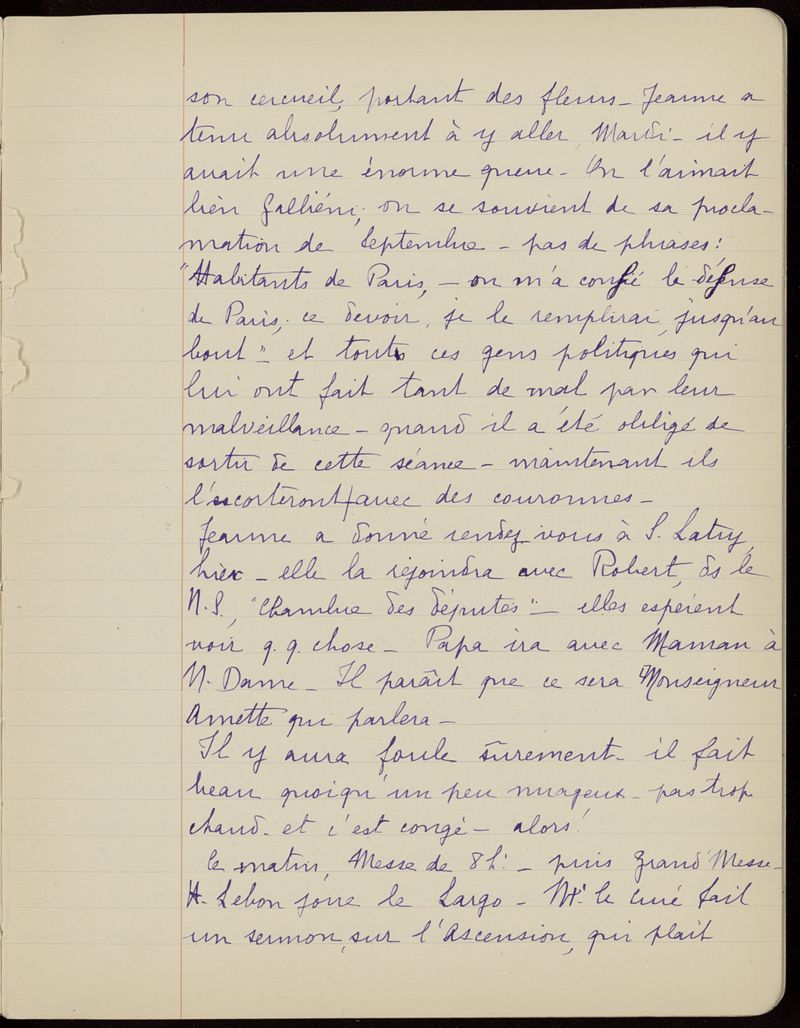 son cercueil, portant des fleurs_ Jeanne a
tenu absolument à y aller, Mardi_ il y
avait une énorme queue_ On l'aimait
bien Galliéni; on se souvient de sa procla-
mation de Septembre_ pas de phrases:
"Habitants de Paris, _ on m'a confié la défense
de Paris; ce devoir, je le remplirai, jusqu'au
bout" _ et touts ces gens politiques qui
lui ont fait tant de mal par leur
malveillance_ quand il a été obligé de
sortir de cette séance_ maintenant ils
l'escorteront avec des couronnes_
Jeanne a donné rendez-vous à S. Latry,
hier_ elle la rejoindra avec Robert, ds le
N.S., "Chambre des députés" _ elles espèrent
voir q.q. chose_ Papa ira avec Maman à
N. Dame_ Il paraît que ce sera Monseigneur
Amette qui parlera_
Il y aura foule sûrement_ il fait
beau quoiqu'un peu nuageux_ pas trop
chaud_ et c'est congé_ alors!
Le matin, Messe de 8h: _ puis Grand'Messe_
H. Lebon joue le Largo_ Mr. le Curé fait
un sermon, sur l'Ascension, qui plaît